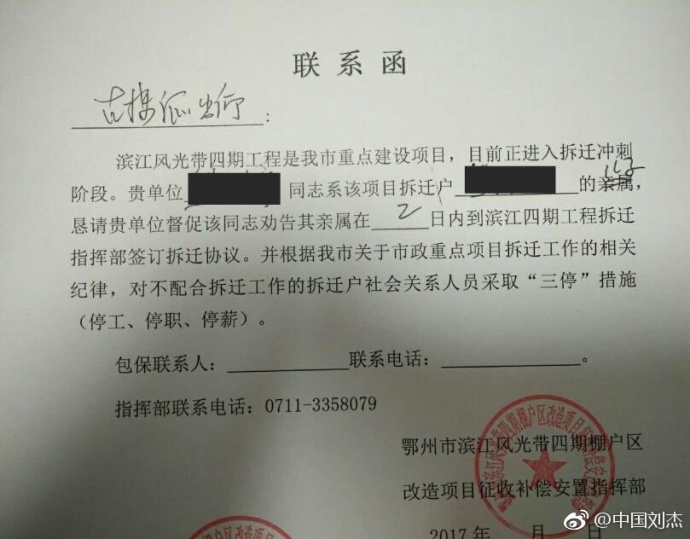 联系函
古楼派出所:
滨江风光带四期工程是我市重点建设项目，目前正进入拆迁冲刺
阶段。贵单位 同志系该项目拆迁户 的亲属，
恳请贵单位督促该同志劝告其亲属在 2 日内到滨江四期工程拆迁
指挥部签订拆迁协议。并根据我市关于市政重点项目拆迁工作的相关
纪律，对不配合拆迁工作的拆迁户社会关系人员采取“三停”措施
（停工、停职、停薪）。
包保联系人： 联系电话： 。
指挥部联系电话：0711-3358079
鄂州市滨江风光带四期棚户区
改造项目征收补偿安置指挥部
2017年 月 日
@中国刘杰